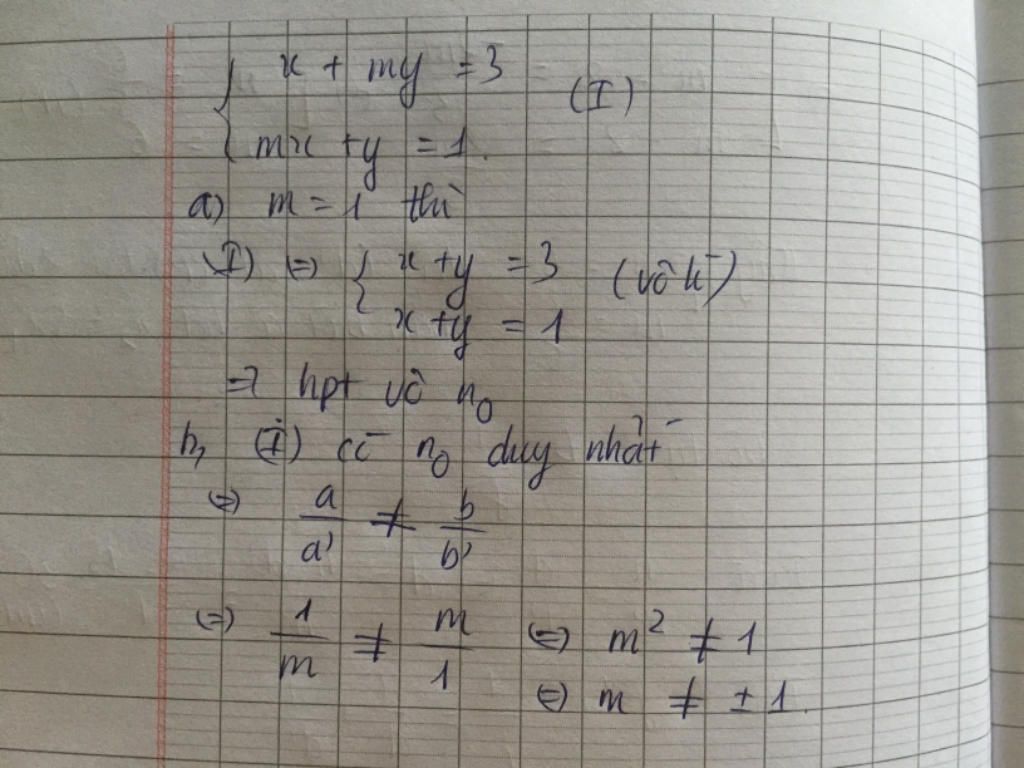 x + my = 3
(I)
mx + y = 1.
a) m = 1 thì
(I) ⇔ { x + y = 3 (vô lí)
x + y = 1
⇒ hpt vô n0
b, (I) có n0 duy nhất
⇔ a/a' ≠ b/b'
⇔ 1/m ≠ m/1 ⇔ m² ≠ 1
⇔ m ≠ ± 1.